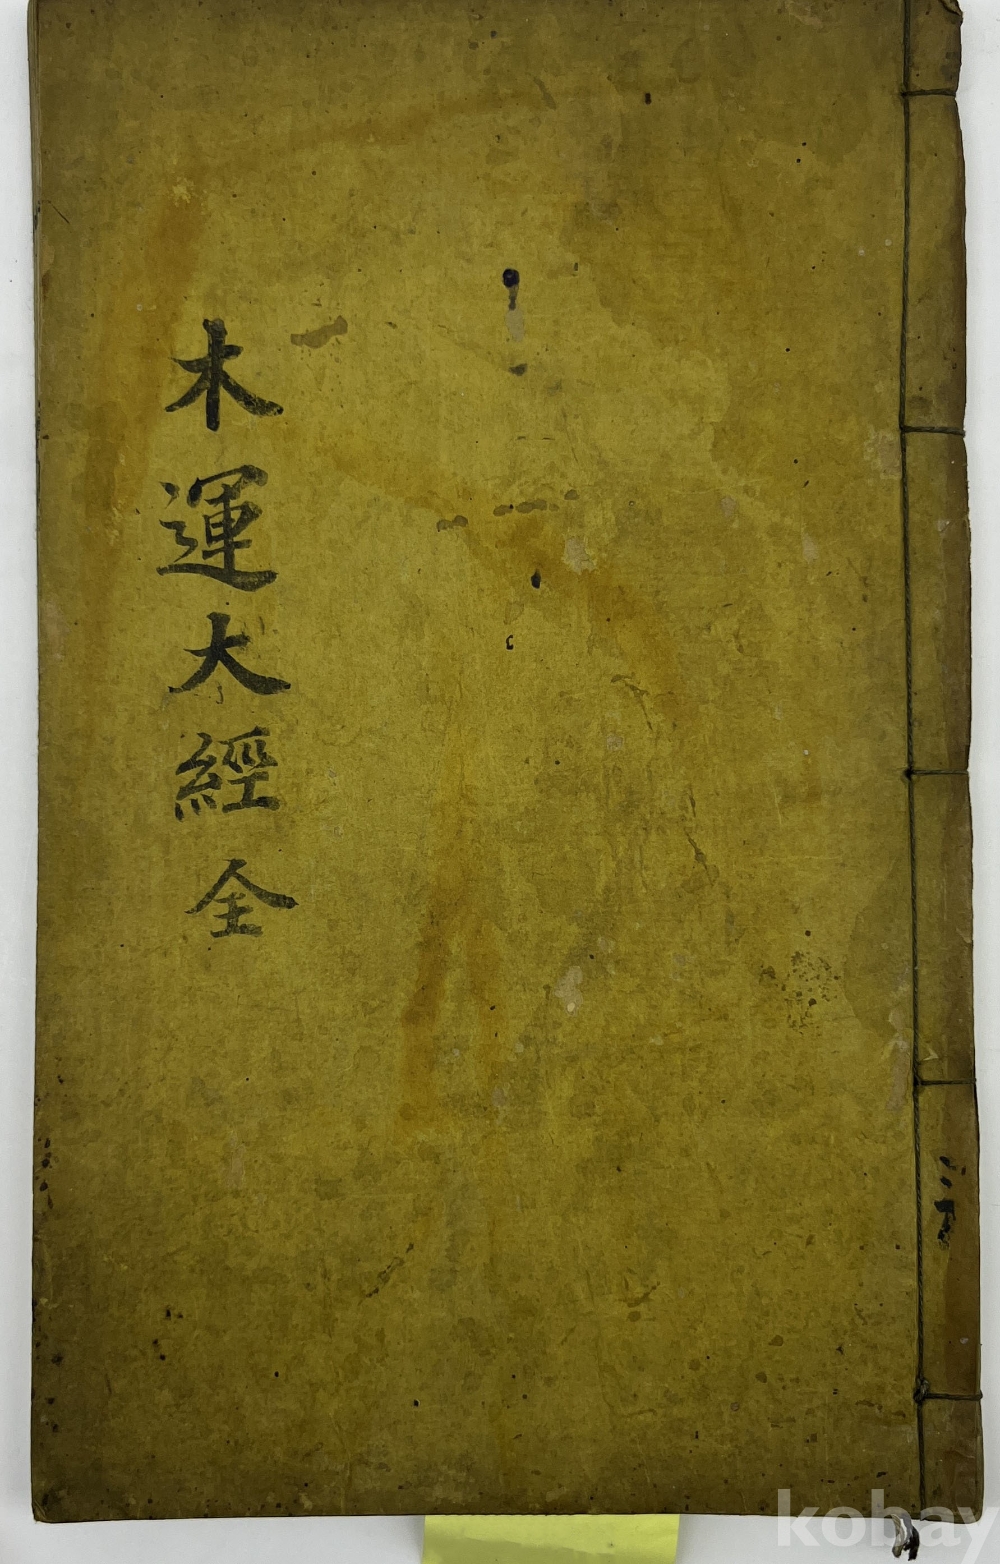 木運大經 全
kobay